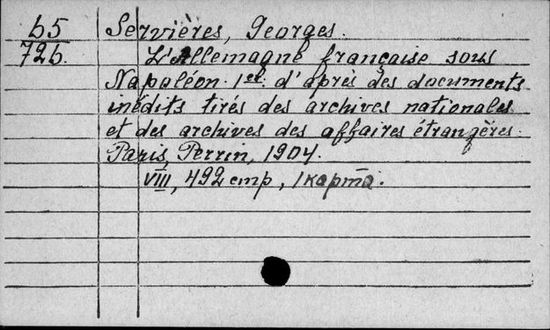 65 Servières, Georges.
726. L'Allemagne française sous
Napoléon 1er d'après des documents
inédits tirés des archives nationales
et des archives des affaires étrangères.
Paris, Perrin, 1904.
VIII, 492 стр, 1 карта.